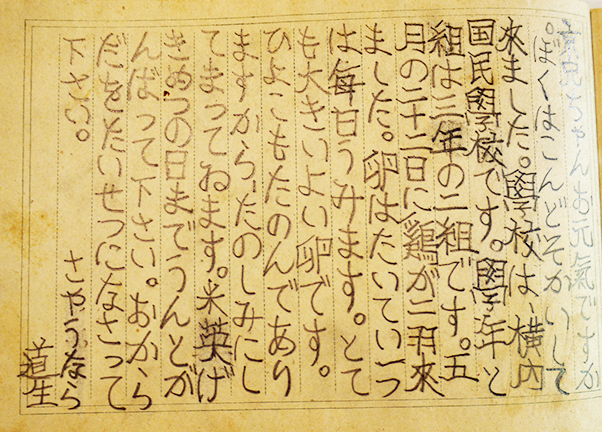 ちゃんお元氣ですか
。ぼくはこんどそかいして
來ました。學校は横内
国民學校です。學年と
組は三年の二組です。五
月の二十二日に、鷄が二羽來
ました。卵はたいてい一つ
は毎日うみます。とて
も大きいよい卵です。
ひよこもたのんであり
ますから、たのしみにし
てまってゐます。米英げ
きめつの日までうんとが
んばって下さい。おから
だをたいせつになさって
下さい。　さやうなら
道生